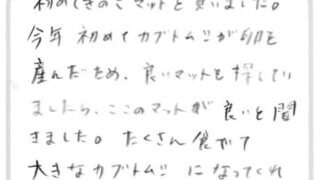 初めてきのこマットを買いました。
今年初めてカブトムシが卵を
産んだため、良いマットを探してい
ましたら、ここのマットが良いと聞
きました。たくさん食べて
大きなカブトムシになってくれ